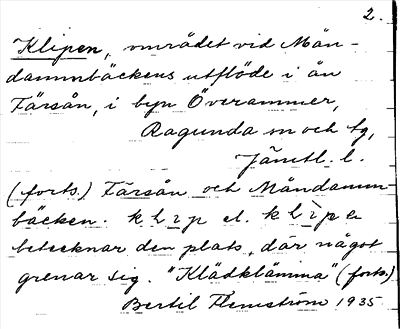 2.
Klipen, området vid Mån-
dammbäckens utflöde i ån
Färsån, i byn Överammer,
Ragunda sn och tg,
Jämtl. l.
(forts.) Färsån och Måndamm-
bäcken. klip el.
betecknar den plats, där något
grenar sig. "Klädklämma" (forts)
Bertil Flemström 1935